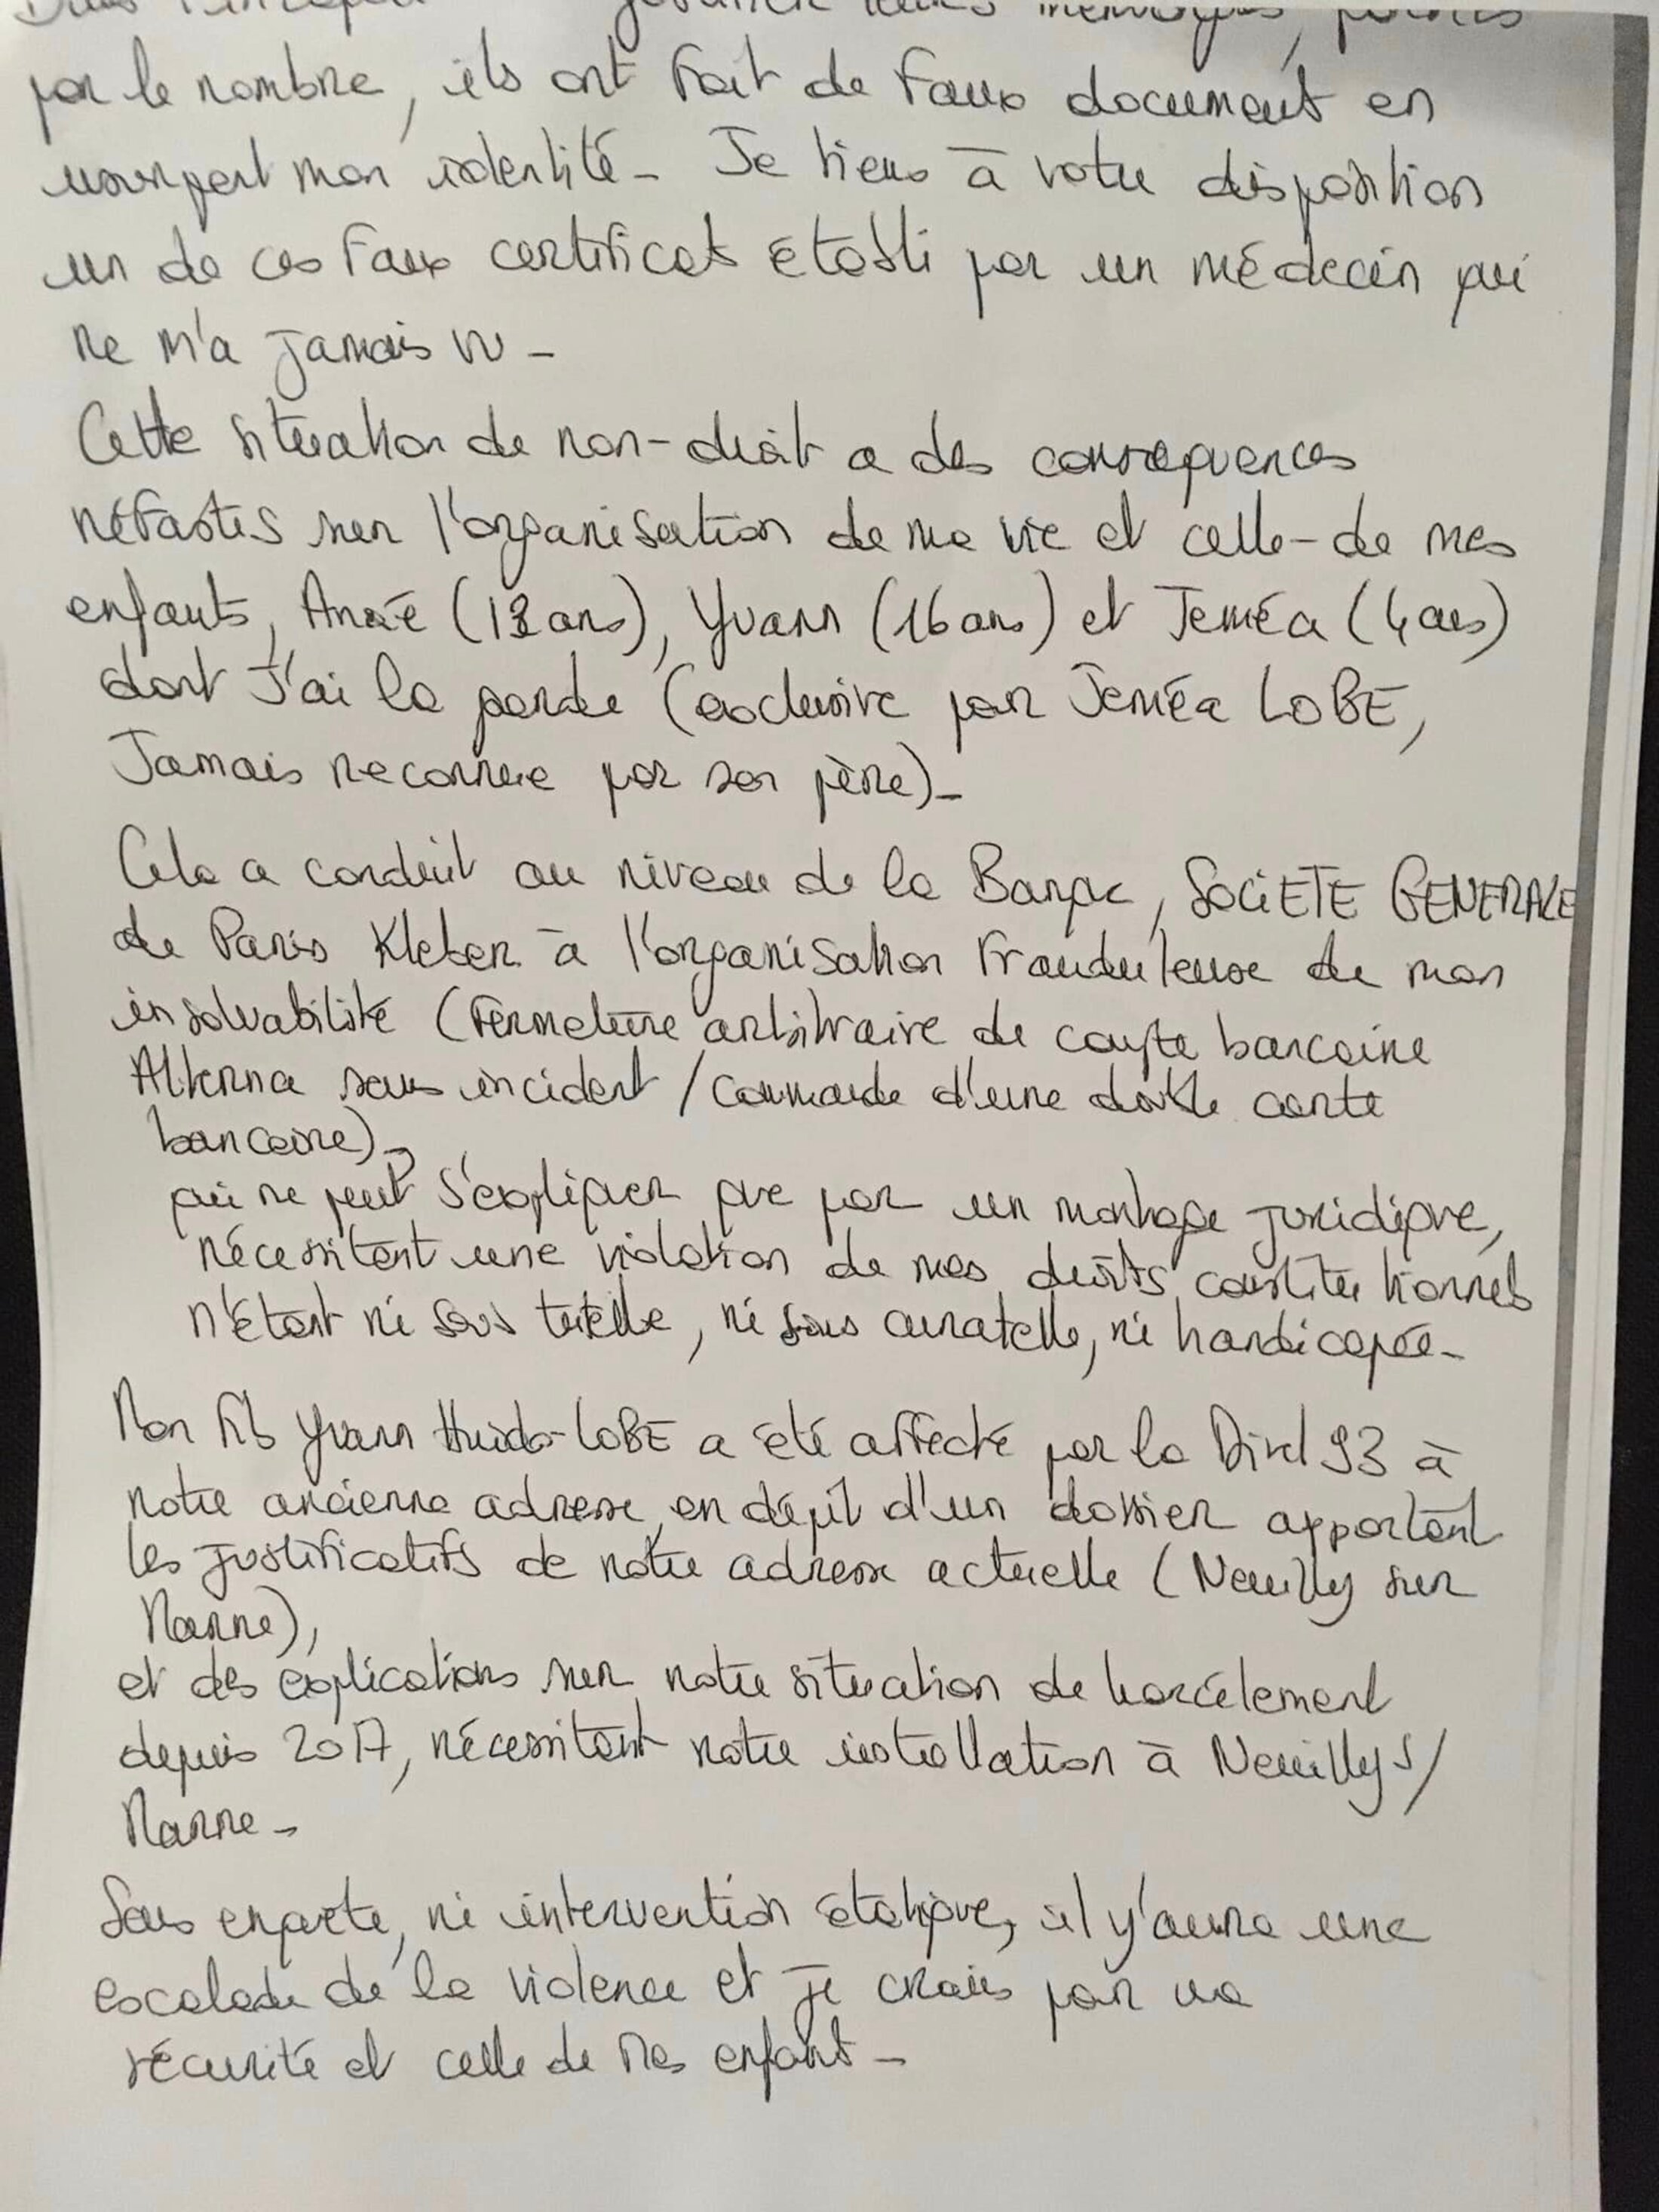 par le nombre, ils ont fait de faux document en
usurpent mon identité - Je tiens à votre disposition
un de ces faux certificat établi par un médecin qui
ne m'a jamais vu -
Cette situation de non-droit a des conséquences
néfastes sur l'organisation de ma vie et celle-de mes
enfants, (13 ans), Yvann (16 ans) et Jeméa (4 ans)
dont j'ai la garde (exclusive pour Jeméa LOBE,
Jamais reconnue par son père) -
Cela a conduit au niveau de la Banque, SOCIETE GENERALE
de Paris Kleber à l'organisation frauduleuse de mon
insolvabilité (Fermeture arbitraire de compte bancaire
Alterna sans incident / commande d'une double carte
bancaire) -
qui ne peut s'expliquer que par un montage juridique,
nécessitant une violation de mes droits constitutionnels
n'étant ni sous tutelle, ni sous curatelle, ni handicapée -
Mon fils Yvann Huido-LOBE a été affecté par la Divel 93 à
notre ancienne adresse, en dépit d'un dossier apportant
les justificatifs de notre adresse actuelle (Neuilly sur
Marne),
et des explications sur notre situation de harcèlement
depuis 2017, nécessitant notre installation à Neuilly s/
Marne -
Sans enquête, ni intervention étatique, il y'aura une
escalade de la violence et je crains pour ma
sécurité et celle de Mes enfant -